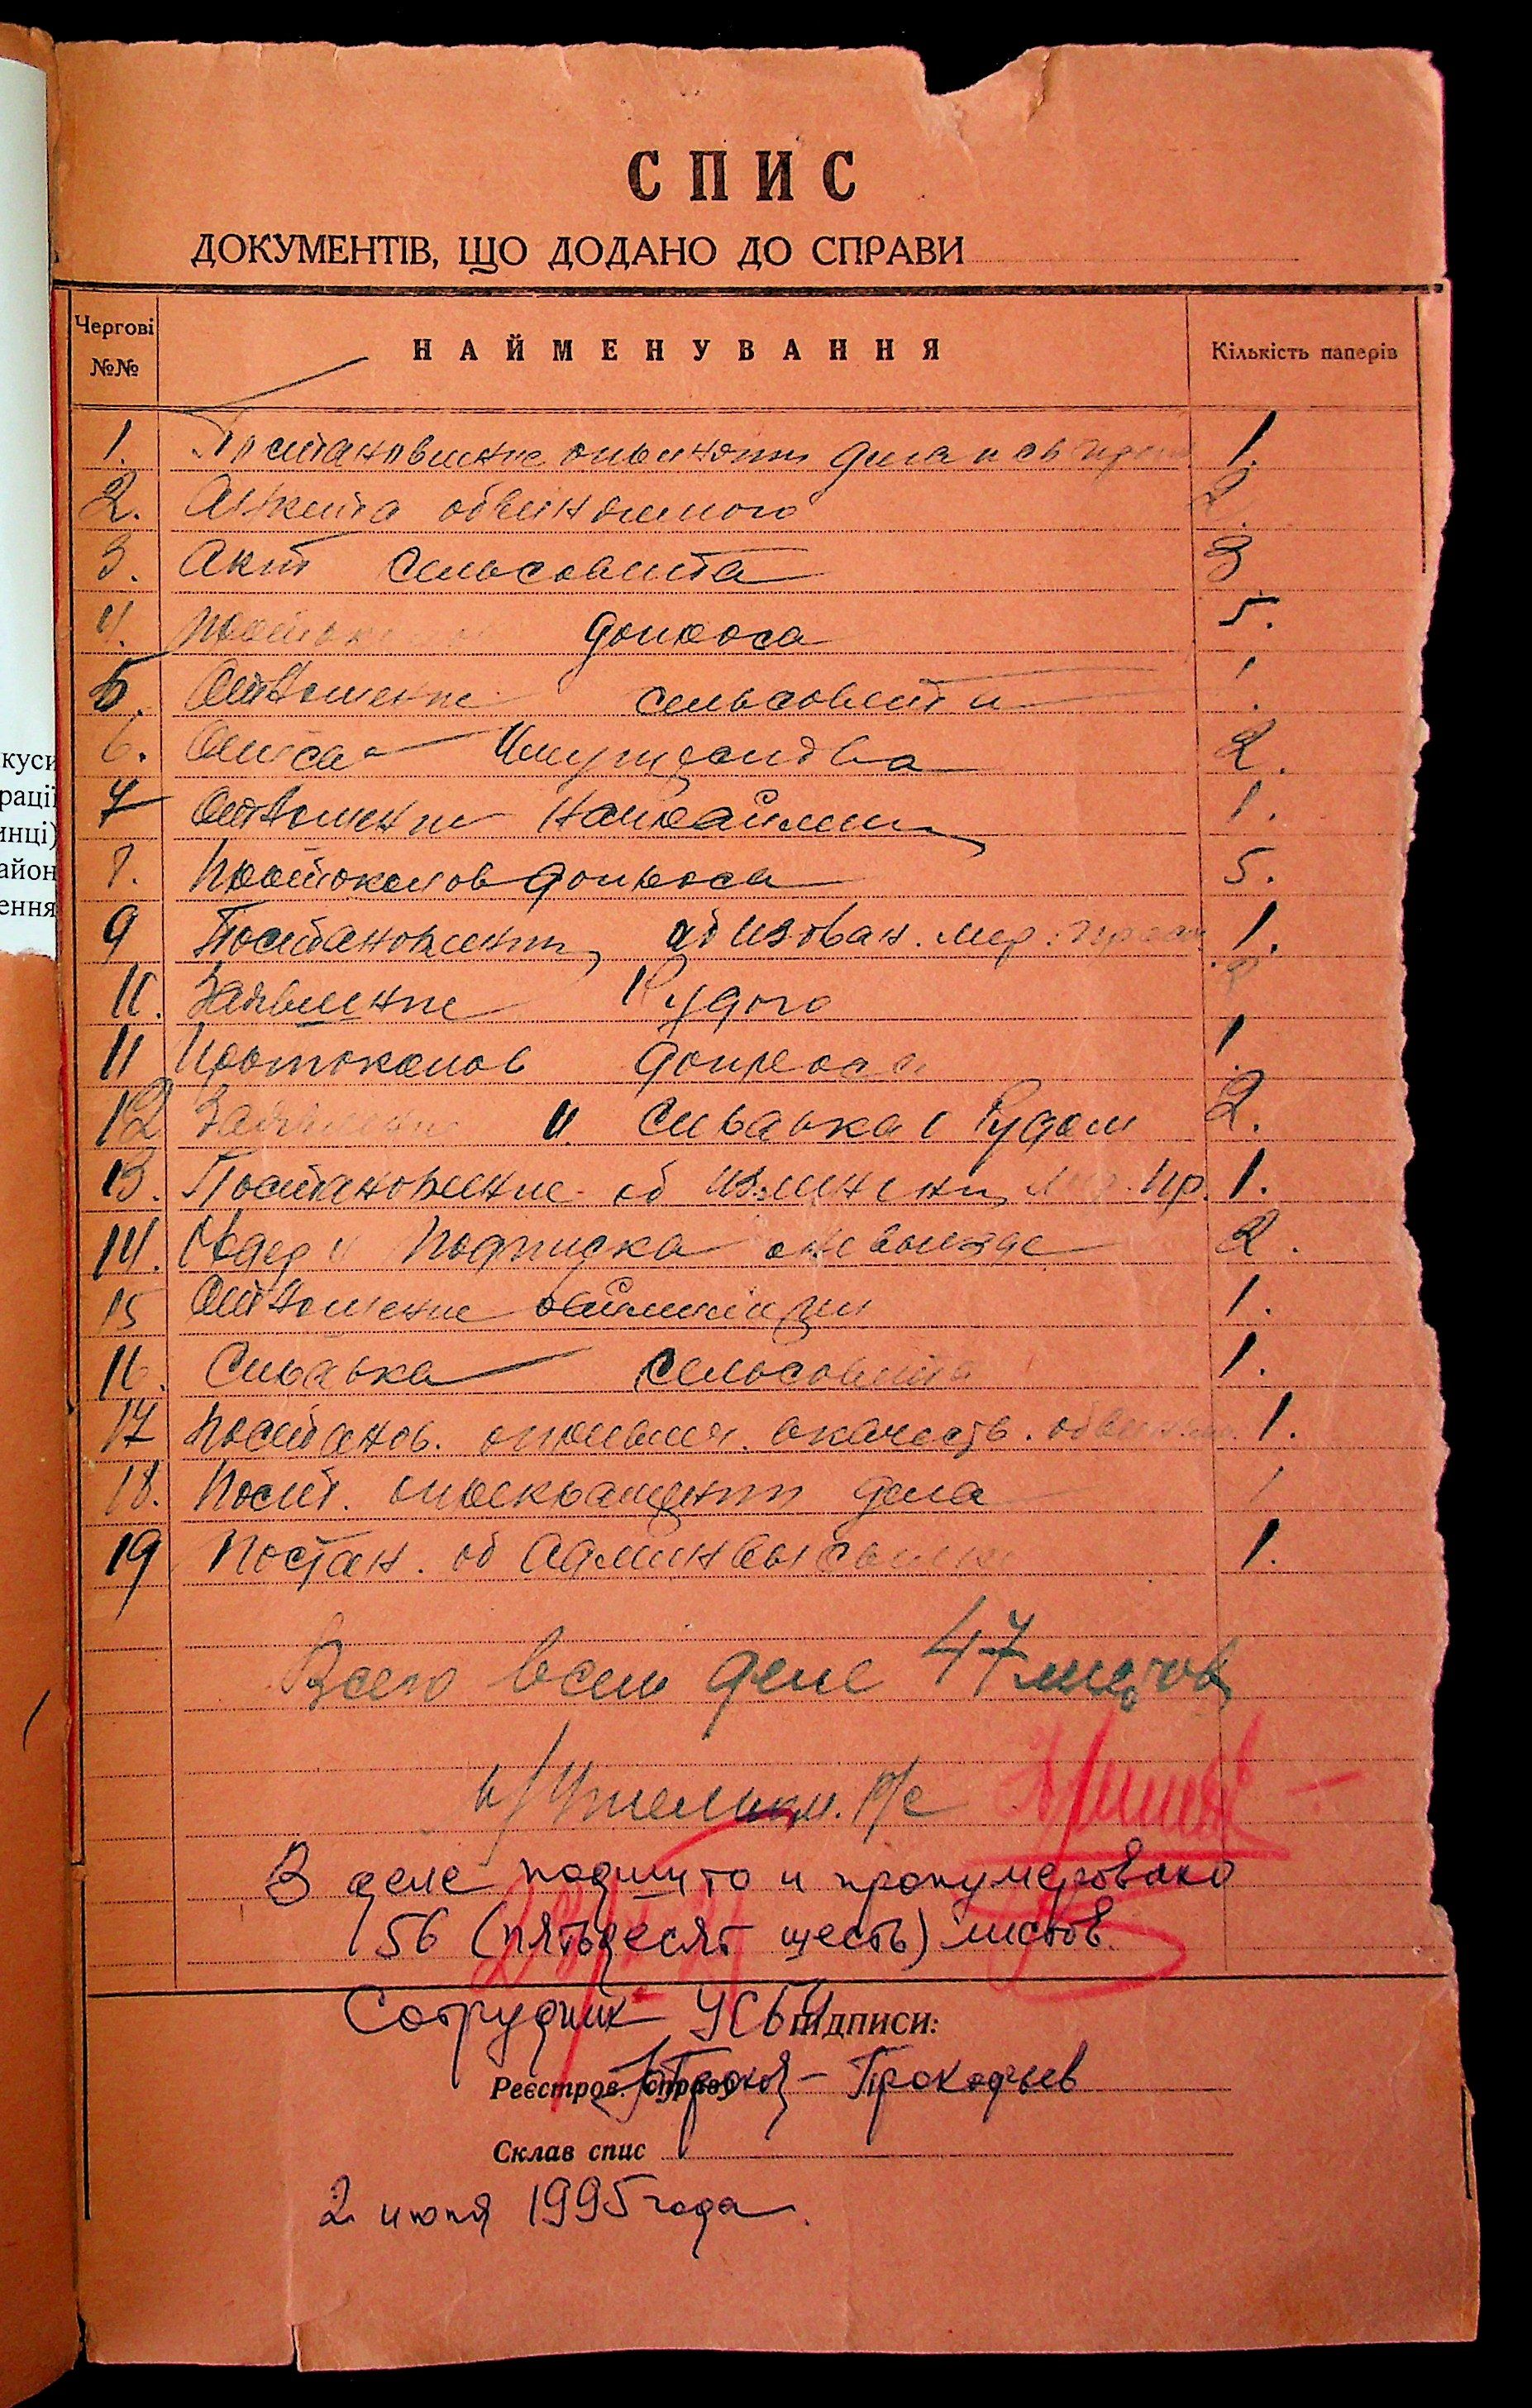 СПИС
ДОКУМЕНТІВ, ЩО ДОДАНО ДО СПРАВИ
Чергові №№ НАЙМЕНУВАННЯ Кількість паперів
1. Постановление дела 1.
2. Анкета обвиняемого 2.
3. Акт сельсовета 3
4. допроса 5.
5. Отношение сельсовета 1.
6. Описа Имущества 2.
7 Отношение 1.
8. Протоколов допроса 5.
9 Постановлении об избран. мер. 1.
10. Заявление Рудого 2
11 Протоколов допроса 1.
12 и Справка Рудом 2.
13. Постановление об изменени мер. пр. 1.
14. Орд и Подписка о невыезде 2.
15 Отношение 1.
16. Справка Сельсовета 1.
17 Постанов. о привлеч. в качеств. обвин. 1.
18. Пост. о прекращении дела 1
19 Постан. об Админвысылке 1.
Всего в сем деле 47 листов
В деле подшито и пронумеровано
56 (пятьдесят шесть) листов.
Сотрудник УСБУ ПІДПИСИ:
Реєстров. справу Прокофьев
Склав спис
2 июня 1995 года.
куси
рації
инці)
айон
ення